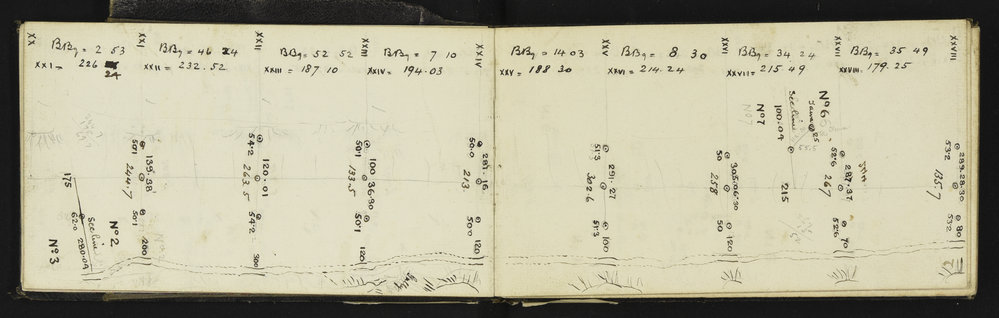 XX
BBg = 2 53
XXI = 226 24
XXI
BBg = 46 24
XXII = 232.52
XXII
BBg = 52 52
XXIII = 187 10
XXIII
BBg = 7 10
XXIV = 194.03
XXIV
175
62.0 280.04
See line
No 2
No 3
50.1 139.38
244.7
50.1 200
54.2 120.01
263.5
54.2 300
50.1 100 36.30
133.5
50.1 120
50.0 287.16
213.
50.0 120
Gully
BBg = 14 03
XXV = 188 30
XXV
BBg = 8. 30
XXVI = 214.24
XXVI
BBg = 34 24
XXVII = 215 49
XXVII
BBg = 35 49
XXVIII = 179.25
XXVIII
51.3 291.27
302.6
51.3 100
50 305.06.30
258
50 120
No 7
100.04
See line
No 6
25
55.5
215
52.6 287.37
267
52.6 70
53.2 289.28.30
135.7
53.2 80